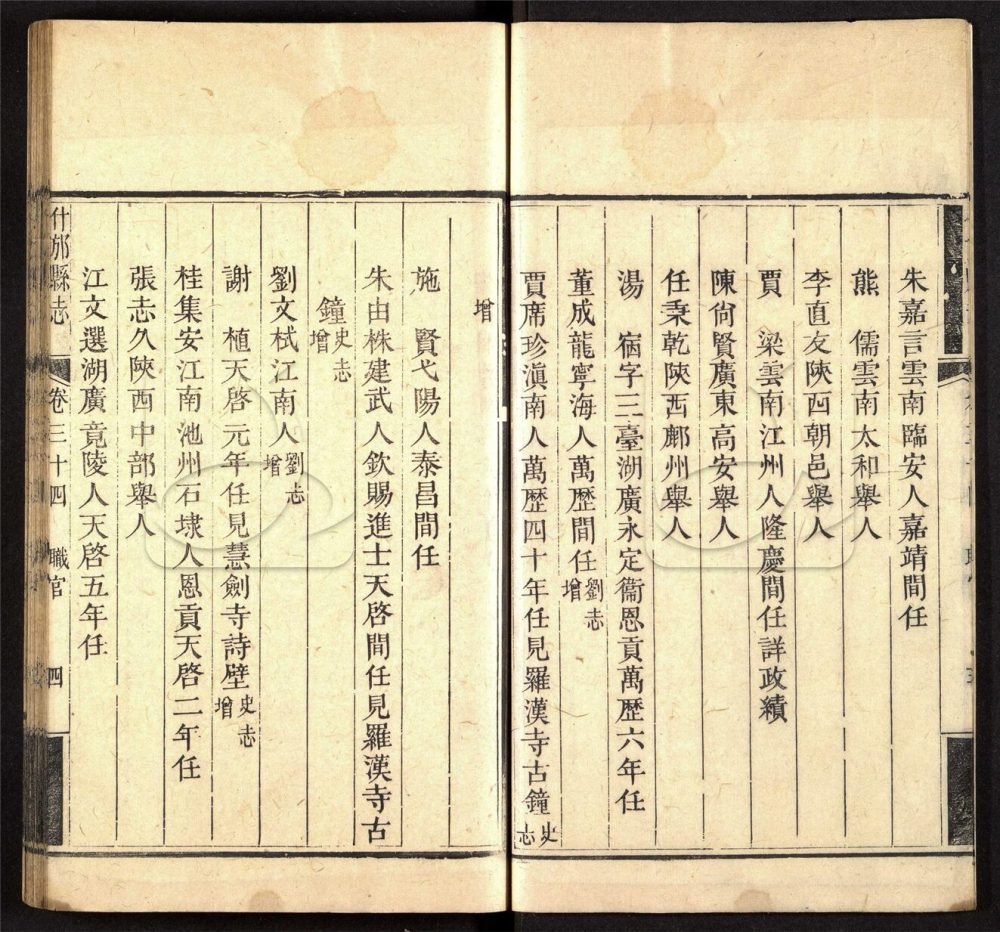 朱嘉言雲南臨安人嘉靖間任
熊　儒雲南太和舉人
李直友陝西朝邑舉人
賈　梁雲南江州人隆慶間任詳政績
陳尙賢廣東高安舉人
任秉乾陝西鄜州舉人
湯　宿字三臺湖廣永定衞恩貢萬歴六年任
董成龍寧海人萬歴間任劉志增
賈席珍滇南人萬歴四十年任見羅漢寺古鐘史志
增
施　賢弋陽人泰昌間任
朱由株建武人欽賜進士天啓間任見羅漢寺古
鐘史志增
劉文栻江南人劉志增
謝　植天啓元年任見慧劍寺詩壁史志增
桂集安江南池州石埭人恩貢天啓二年任
張志久陝西中部舉人
江文選湖廣竟陵人天啓五年任
什邡縣志　卷三十四　職官　四